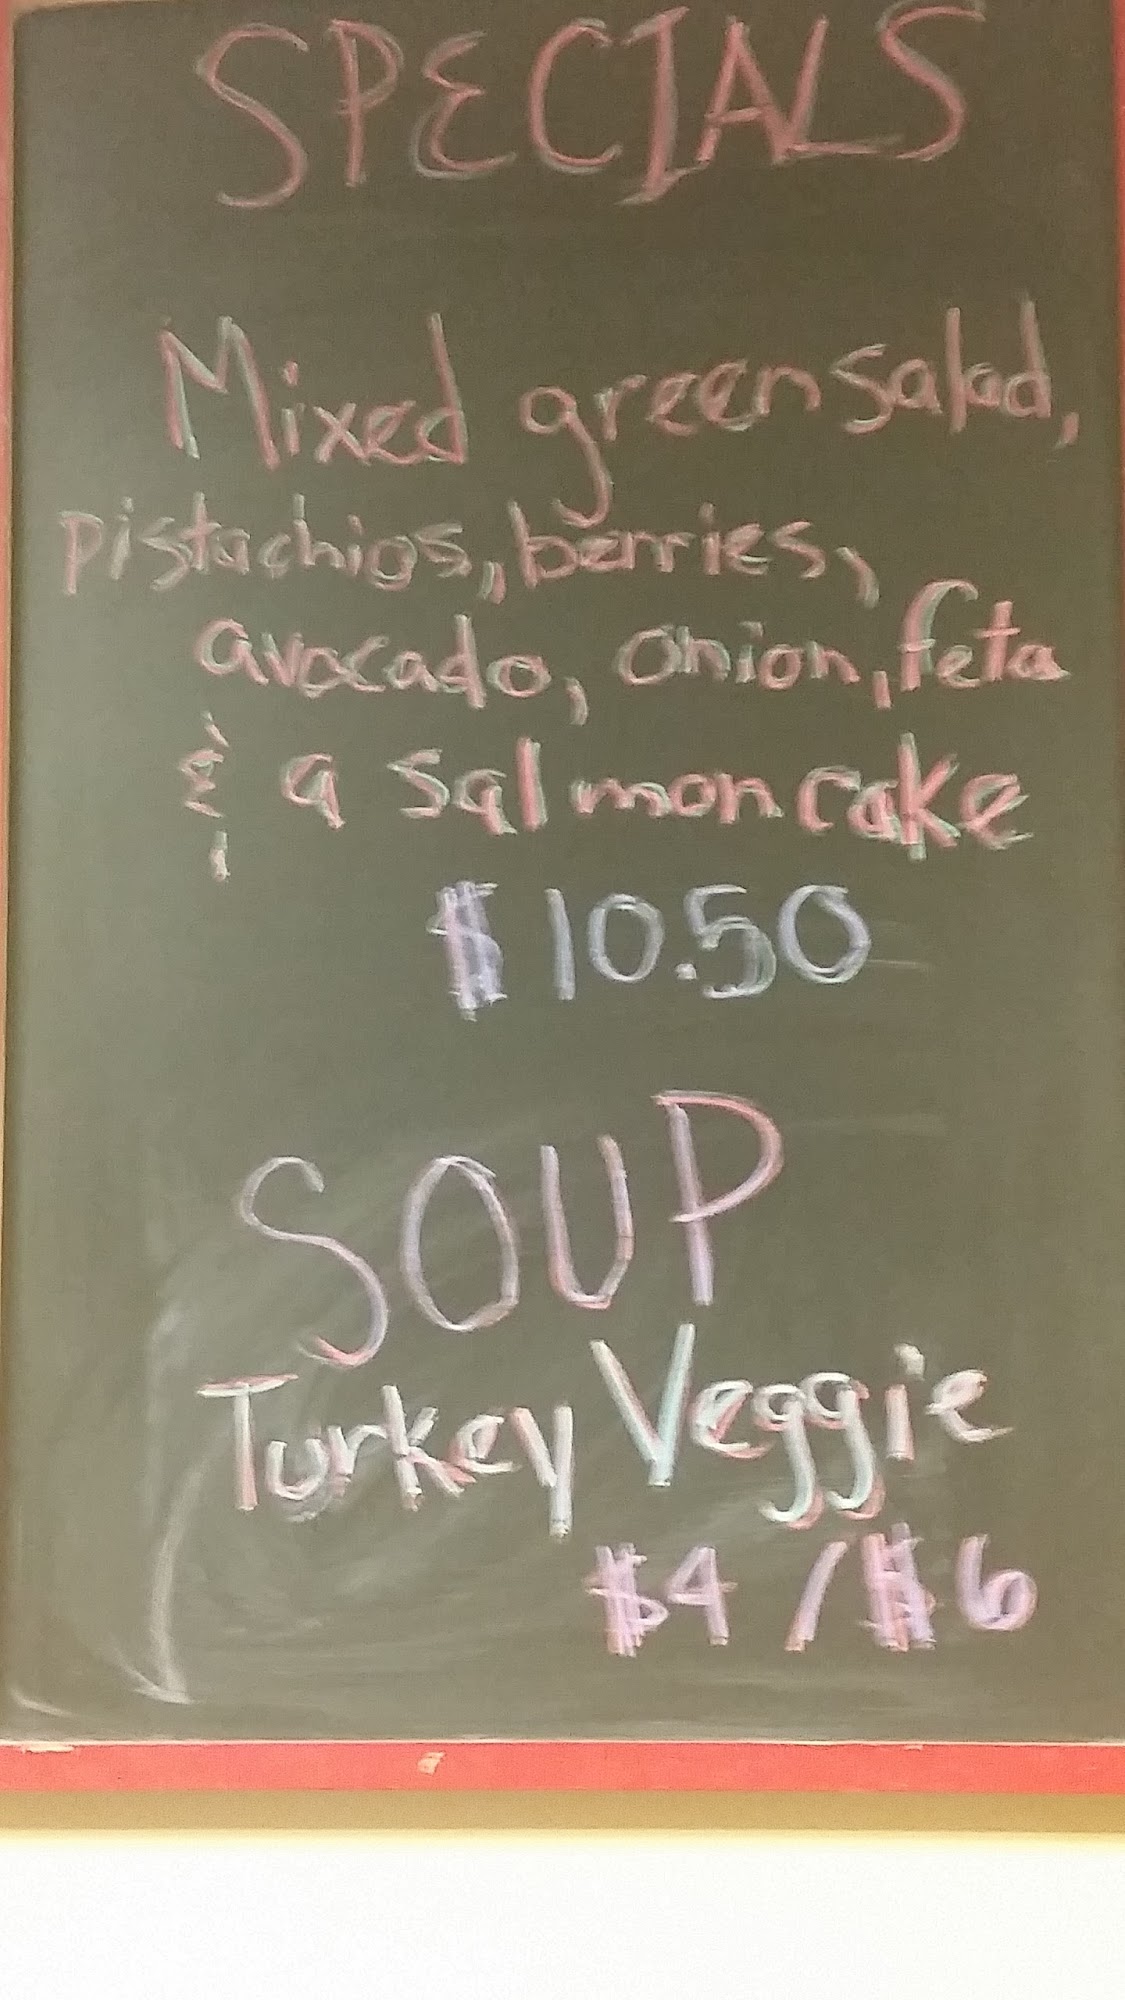 SPECIALS
Mixed green salad,
pistachios, berries,
avocado, onion, feta
& a salmon cake
$10.50
SOUP
Turkey Veggie
$4 / $6